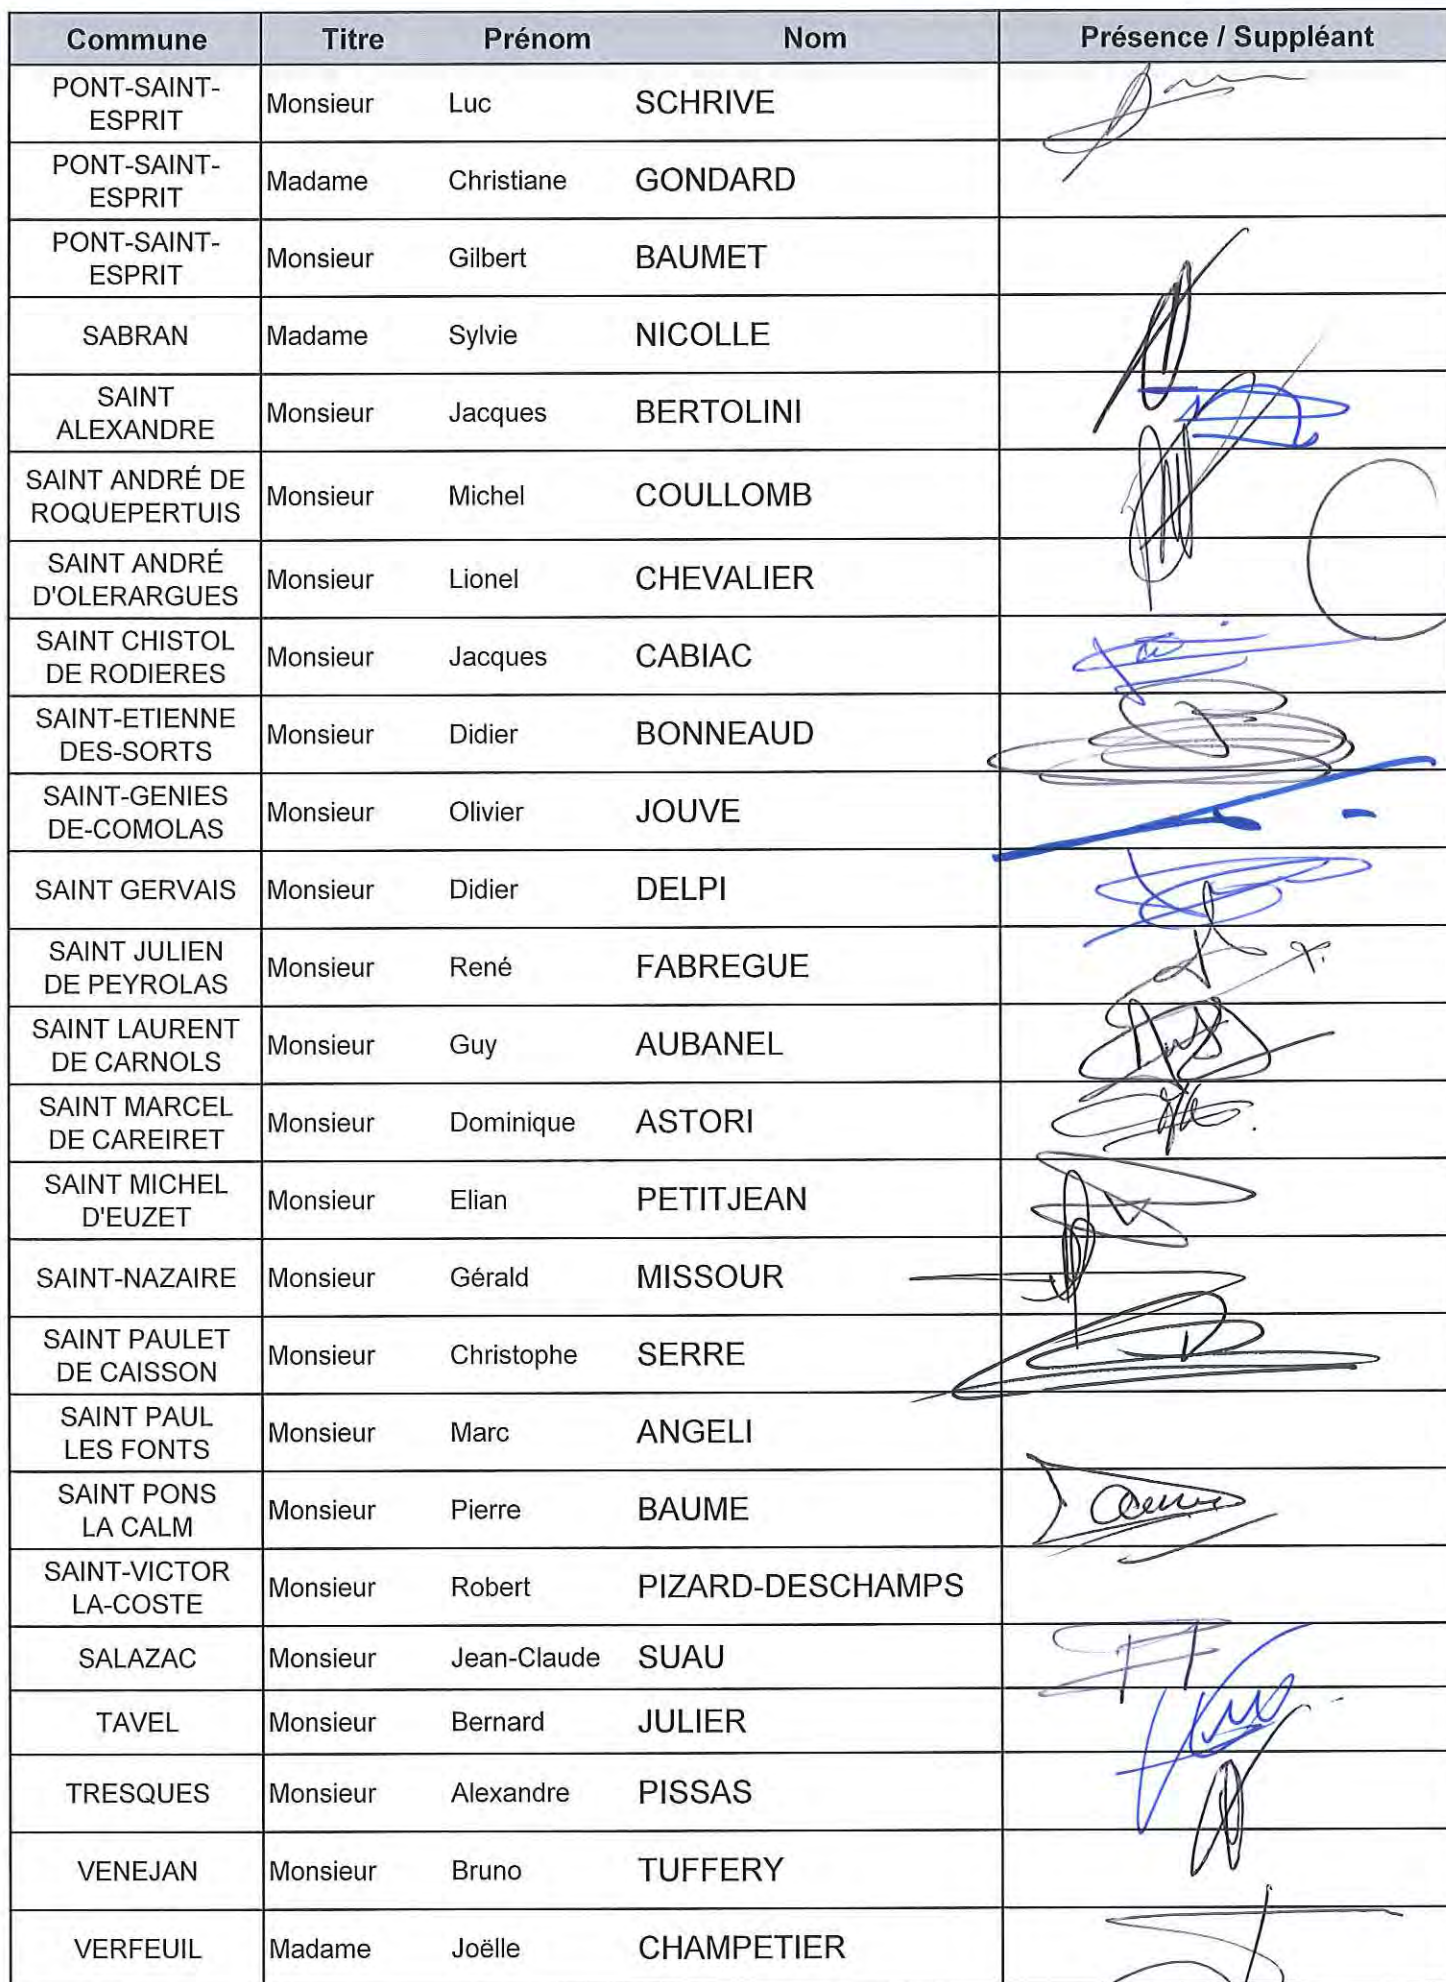 Commune Titre Prénom Nom Présence / Suppléant
PONT-SAINT-
ESPRIT Monsieur Luc SCHRIVE
PONT-SAINT-
ESPRIT Madame Christiane GONDARD
PONT-SAINT-
ESPRIT Monsieur Gilbert BAUMET
SABRAN Madame Sylvie NICOLLE
SAINT
ALEXANDRE Monsieur Jacques BERTOLINI
SAINT ANDRÉ DE
ROQUEPERTUIS Monsieur Michel COULLOMB
SAINT ANDRÉ
D'OLERARGUES Monsieur Lionel CHEVALIER
SAINT CHISTOL
DE RODIERES Monsieur Jacques CABIAC
SAINT-ETIENNE
DES-SORTS Monsieur Didier BONNEAUD
SAINT-GENIES
DE-COMOLAS Monsieur Olivier JOUVE
SAINT GERVAIS Monsieur Didier DELPI
SAINT JULIEN
DE PEYROLAS Monsieur René FABREGUE
SAINT LAURENT
DE CARNOLS Monsieur Guy AUBANEL
SAINT MARCEL
DE CAREIRET Monsieur Dominique ASTORI
SAINT MICHEL
D'EUZET Monsieur Elian PETITJEAN
SAINT-NAZAIRE Monsieur Gérald MISSOUR
SAINT PAULET
DE CAISSON Monsieur Christophe SERRE
SAINT PAUL
LES FONTS Monsieur Marc ANGELI
SAINT PONS
LA CALM Monsieur Pierre BAUME
SAINT-VICTOR
LA-COSTE Monsieur Robert PIZARD-DESCHAMPS
SALAZAC Monsieur Jean-Claude SUAU
TAVEL Monsieur Bernard JULIER
TRESQUES Monsieur Alexandre PISSAS
VENEJAN Monsieur Bruno TUFFERY
VERFEUIL Madame Joëlle CHAMPETIER